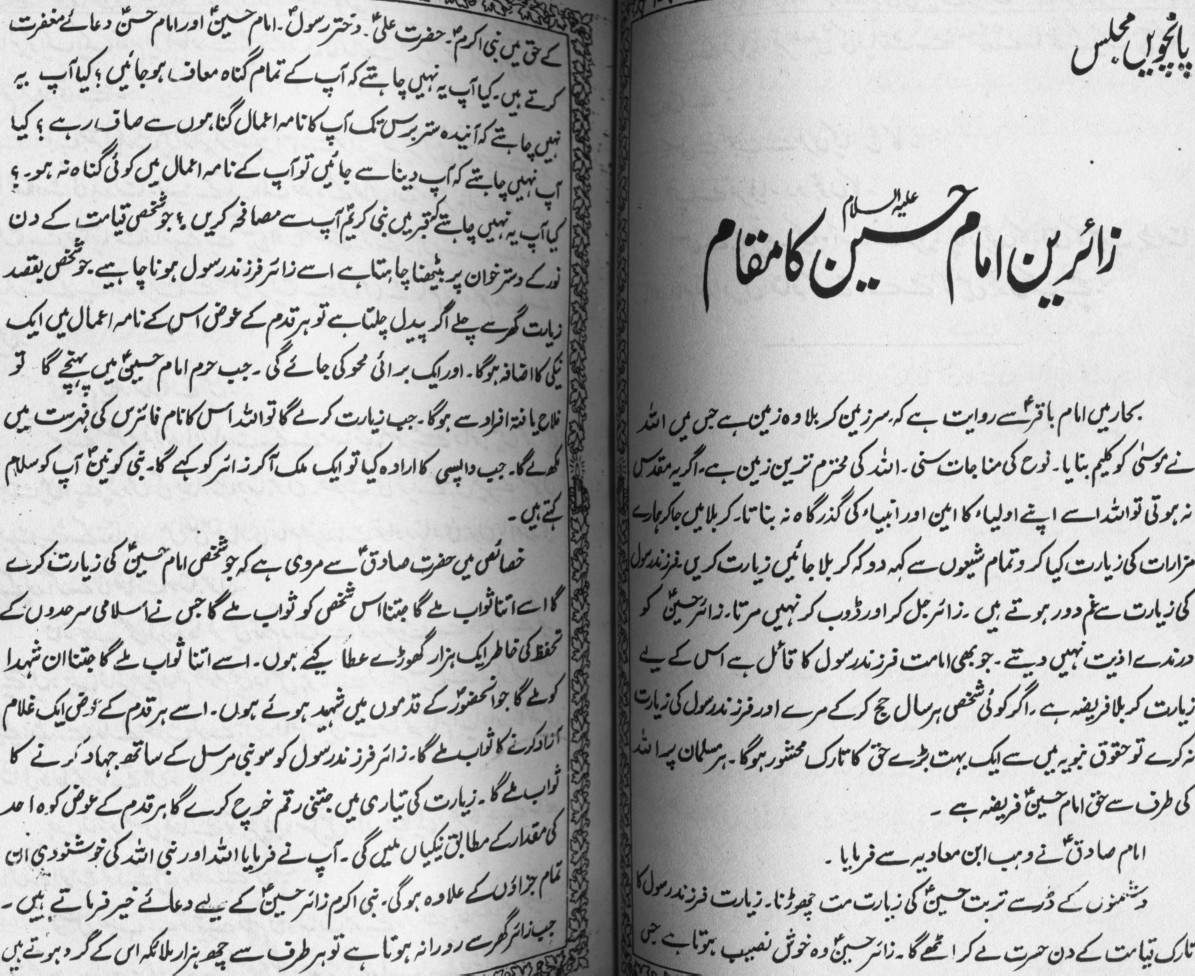 پانچویں مجلس
زائرین امام حسین علیہ السلام کا مقام
بحار میں امام باقرؑ سے روایت ہے کہ سرزمین کربلا وہ زمین ہے جس میں اللہ
نے موسیٰ کو کلیم بنایا۔ نوح کی مناجات سنی۔ اللہ کی محترم ترین زمین ہے۔ اگر یہ مقدس
نہ ہوتی تو اللہ اسے اپنے اولیاء کا امین اور انبیاء کی گذرگاہ نہ بناتا۔ کربلا میں جاکر ہمارے
مزارات کی زیارت کیا کرو تمام شیعوں سے کہہ دو کہ کربلا جائیں زیارت کریں۔ فرزند رسول
کی زیارت سے غم دور ہوتے ہیں۔ زائر جل کر اور ڈوب کر نہیں مرتا۔ زائر حسینؑ کو
درندے اذیت نہیں دیتے۔ جو بھی امامت فرزند رسول کا قائل ہے اس کے لیے
زیارت کربلا فریضہ ہے۔ اگر کوئی شخص ہر سال حج کرکے مرے اور فرزند رسول کی زیارت
نہ کرے تو حقوق نبویہ میں سے ایک بہت بڑے حق کا تارک محشور ہوگا۔ ہر مسلمان پر اللہ
کی طرف سے حق امام حسینؑ فریضہ ہے۔
امام صادقؑ نے وہب ابن معاویہ سے فرمایا۔
دشمنوں کے ڈر سے تربت حسینؑ کی زیارت مت چھوڑنا۔ زیارت فرزند رسول کا
تارک قیامت کے دن حسرت لے کر اٹھے گا۔ زائر حسینؑ وہ خوش نصیب ہوتا ہے جس
کے حق میں نبی اکرمؐ حضرت علیؑ۔ دختر رسولؑ۔ امام حسینؑ اور امام حسنؑ دعائے مغفرت
کرتے ہیں۔ کیا آپ یہ نہیں چاہتے کہ آپ کے تمام گناہ معاف ہوجائیں؟ کیا آپ یہ
نہیں چاہتے کہ آئندہ ستر برس تک آپ کا نامہ اعمال گناہوں سے صاف رہے؟ کیا
آپ نہیں چاہتے کہ آپ دینا سے جائیں تو آپ کے نامہ اعمال میں کوئی گناہ نہ ہو۔؟
کیا آپ یہ نہیں چاہتے کہ قبر میں نبی کریمؐ آپ سے مصافحہ کریں؟ جو شخص قیامت کے دن
نور کے دسترخوان پر بیٹھنا چاہتا ہے اسے زائر فرزند رسول ہونا چاہیے۔ جو شخص بقصد
زیارت گھر سے چلے اگر پیدل چلتا ہے تو ہر قدم کے عوض اس کے نامہ اعمال میں ایک
نیکی کا اضافہ ہوگا۔ اور ایک برائی محو کی جائے گی۔ جب حرم امام حسینؑ میں پہنچے گا تو
فلاح یافتہ افراد سے ہوگا۔ جب زیارت کرلے گا تو اللہ اس کا نام فائزس کی فہرست میں
لکھے گا۔ جب واپسی کا ارادہ کیا تو ایک ملک آکر زائر کو کہے گا۔ نبی کونینؐ آپ کو سلام
کہتے ہیں۔
خصائص میں حضرت صادقؑ سے مروی ہے کہ جو شخص امام حسینؑ کی زیارت کرے
گا اسے اتنا ثواب ملے گا جتنا اس شخص کو ثواب ملے گا جس نے اسلامی سرحدوں کے
تحفظ کی خاطر ایک ہزار گھوڑے عطا کیے ہوں۔ اسے اتنا ثواب ملے گا جتنا ان شہدا
کو ملے گا جو آنحضورؐ کے قدموں میں شہید ہوئے ہوں۔ اسے ہر قدم کے عوض ایک غلام
آزاد کرنے کا ثواب ملے گا۔ زائر فرزند رسول کو سو نبی مرسل کے ساتھ جہاد کرنے کا
ثواب ملے گا۔ زیارت کی تیاری میں جتنی رقم خرچ کرے گا ہر قدم کے عوض کوہ احد
کی مقدار کے مطابق نیکیاں ملیں گی۔ آپ نے فرمایا اللہ اور نبی اللہ کی خوشنودی ان
تمام جزاؤں کے علاوہ ہوگی۔ نبی اکرم زائر حسینؑ کے لیے دعائے خیر فرماتے ہیں۔
جب زائر گھر سے روانہ ہوتا ہے تو ہر طرف سے چھ ہزار ملائکہ اس کے گرد ہوتے ہیں